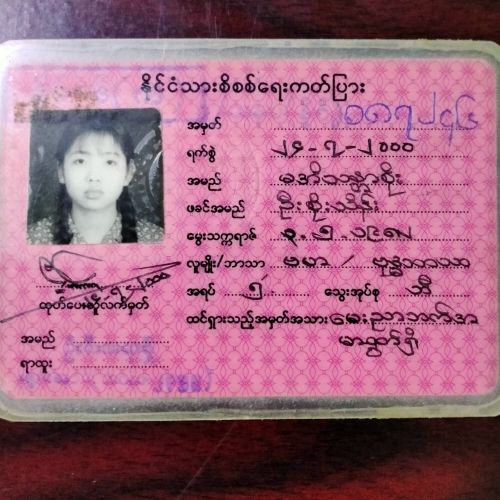 နိုင်ငံသားစိစစ်ရေးကတ်ပြား
အမှတ် ၀၈၇၂၄၆
ရက်စွဲ ၂၄-၇-၂၀၀၀
အမည် မအိသန္တာစိုး
ဖခင်အမည် ဦးစိုးသိန်း
မွေးသက္ကရာဇ် ၃.၅.၁၉၈၅
လူမျိုး/ဘာသာ ဗမာ / ဗုဒ္ဓဘာသာ
အရပ် ၅' သွေးအုပ်စု ဘီ
ထင်ရှားသည့်အမှတ်အသား မေးညာဘက်အ
မာရွတ်ရှိ
ထုတ်ပေးသူလက်မှတ်
အမည်
ရာထူး